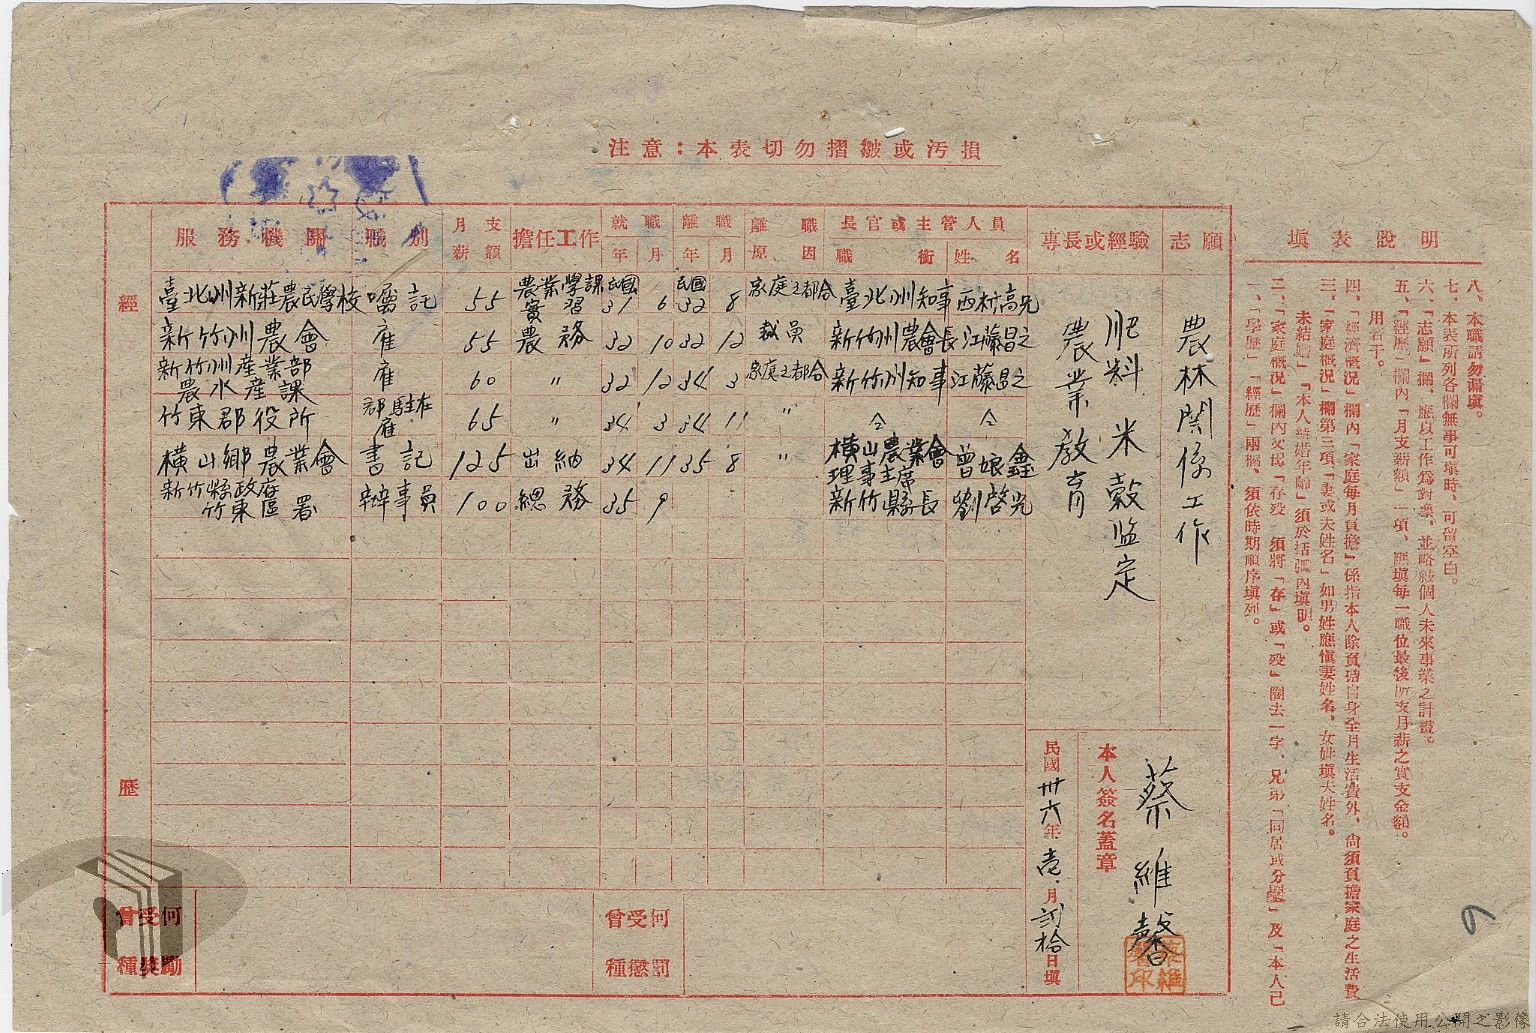 注意：本表切勿摺皺或污損
填表說明
一、「學歷」「經歷」兩欄、須依時期順序填列。
二、「家庭概況」欄內父母「存歿」須將「存」或「歿」圈去一字、兄弟「同居或分學」及「本人已
未結婚」「本人結婚年齡」須於括弧內填明。
三、「家庭概況」欄第三項「妻或夫姓名」如男姓應慎妻姓名、女姓填夫姓名。
四、「經濟概況」欄內「家庭每月負擔」係指本人除負擔自身全月生活費外、尚須負擔家庭之生活費
用若干。
五、「經歷」欄內「月支薪額」一項、應填每一職位最後所支月薪之實支金額。
六、「志願」欄、應以工作為對象、並略敍個人未來事業之計畫。
七、本表所列各欄無事可填時、可留空白。
八、本職請勿漏填。
志願
農林関係工作
專長或經驗
肥料米穀監定
農業教育
經歷
服務機關 職別 月支薪額 擔任工作 就職年月 離職年月 離職原因 長官或主管人員 職銜 姓名
臺北州新莊農民學校 囑託 55 農業學課實習 民國31 6 民國32 8 家庭之都合 臺北州知事 西村高兄
新竹州農會 雇 55 農務 32 10 32 12 裁員 新竹州農會長 江藤昌之
新竹州產業部農水產課 雇 60 〃 32 12 34 3 家庭之都合 新竹州知事 江藤昌之
竹東郡役所 郡駐在雇 65 〃 34 3 34 11 〃 仝 仝
橫山鄉農業會 書記 125 出納 34 11 35 8 〃 橫山農業會理事主席 曾娘鑫
新竹縣政府竹東區署 辦事員 100 總務 35 9 新竹縣長 劉啓光
本人簽名蓋章
蔡維馨
民國卅六年壱月貳拾日填
曾受何種獎勵
曾受何種懲罰
請合法使用公開之影像